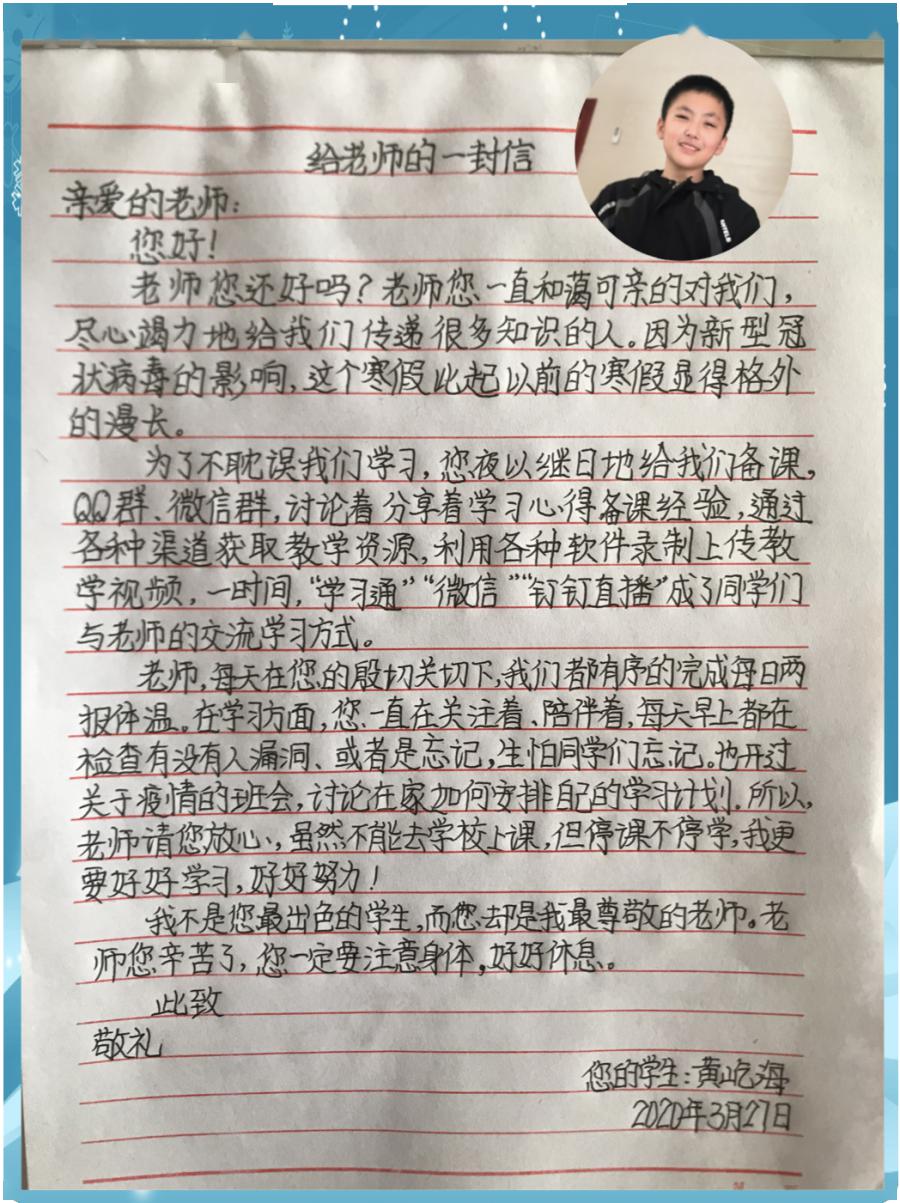 给老师的一封信
亲爱的老师：
您好！
老师您还好吗？老师您一直和蔼可亲的对我们，
尽心竭力地给我们传递很多知识的人。因为新型冠
状病毒的影响，这个寒假比起以前的寒假显得格外
的漫长。
为了不耽误我们学习，您夜以继日地给我们备课，
QQ群、微信群，讨论着分享着学习心得备课经验，通过
各种渠道获取教学资源，利用各种软件录制上传教
学视频，一时间，“学习通”“微信”“钉钉直播”成了同学们
与老师的交流学习方式。
老师，每天在您的殷切关切下，我们都有序的完成每日两
报体温。在学习方面，您一直在关注着、陪伴着，每天早上都在
检查有没有人漏洞、或者是忘记，生怕同学们忘记。也开过
关于疫情的班会，讨论在家如何安排自己的学习计划．所以，
老师请您放心、虽然不能去学校上课，但停课不停学，我更
要好好学习，好好努力！
我不是您最出色的学生，而您却是我最尊敬的老师。老
师您辛苦了，您一定要注意身体，好好休息。
此致
敬礼
您的学生：黄屹海
2020年3月27日